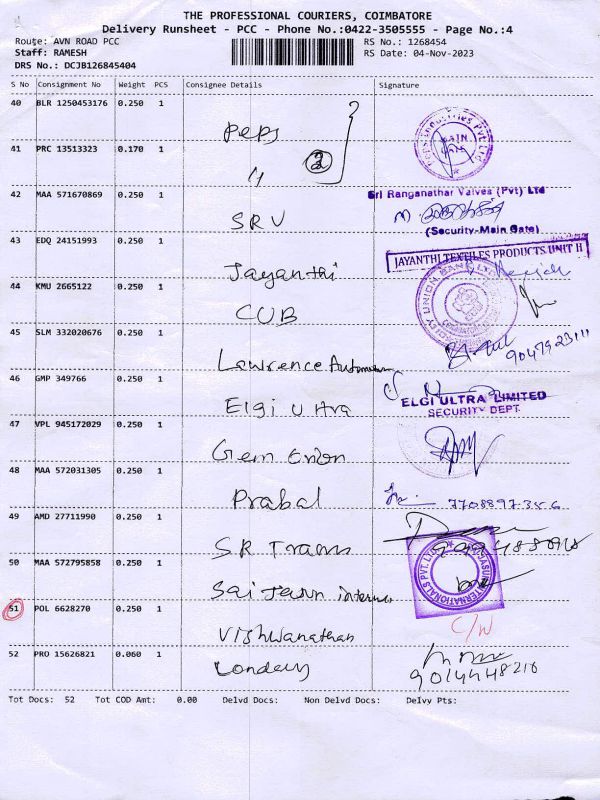 THE PROFESSIONAL COURIERS, COIMBATORE
Delivery Runsheet - PCC - Phone No.:0422-3505555 - Page No.:4
Route: AVN ROAD PCC RS No.: 1268454
Staff: RAMESH RS Date: 04-Nov-2023
DRS No.: DCJB126845404
S No Consignment No Weight PCS Consignee Details Signature
40 BLR 1250453176 0.250 1
Peps
41 PRC 13513323 0.170 1
② 
42 MAA 571670869 0.250 1 Sri Ranganathar Valves (Pvt) Ltd
SRV
(Security-Main Gate)
43 EDQ 24151993 0.250 1
JAYANTHI TEXTILES PRODUCTS UNIT H
Jayanthi
44 KMU 2665122 0.250 1
CUB CITY UNION BANK LTD
45 SLM 332020676 0.250 1
Lawrence
46 GMP 349766 0.250 1
Elgi Ultra ELGI ULTRA LIMITED
SECURITY DEPT.
47 VPL 945172029 0.250 1
Gem
48 MAA 572031305 0.250 1
Prabal 7708897356
49 AMD 27711990 0.250 1
SR Trans
50 MAA 572795858 0.250 1
Sai
INTERNATIONALS PVT. LTD.
51 POL 6628270 0.250 1
Vishwanathan C/W
52 PRO 15626821 0.060 1
9014448216
Tot Docs: 52 Tot COD Amt: 0.00 Delvd Docs: Non Delvd Docs: Delvy Pts: